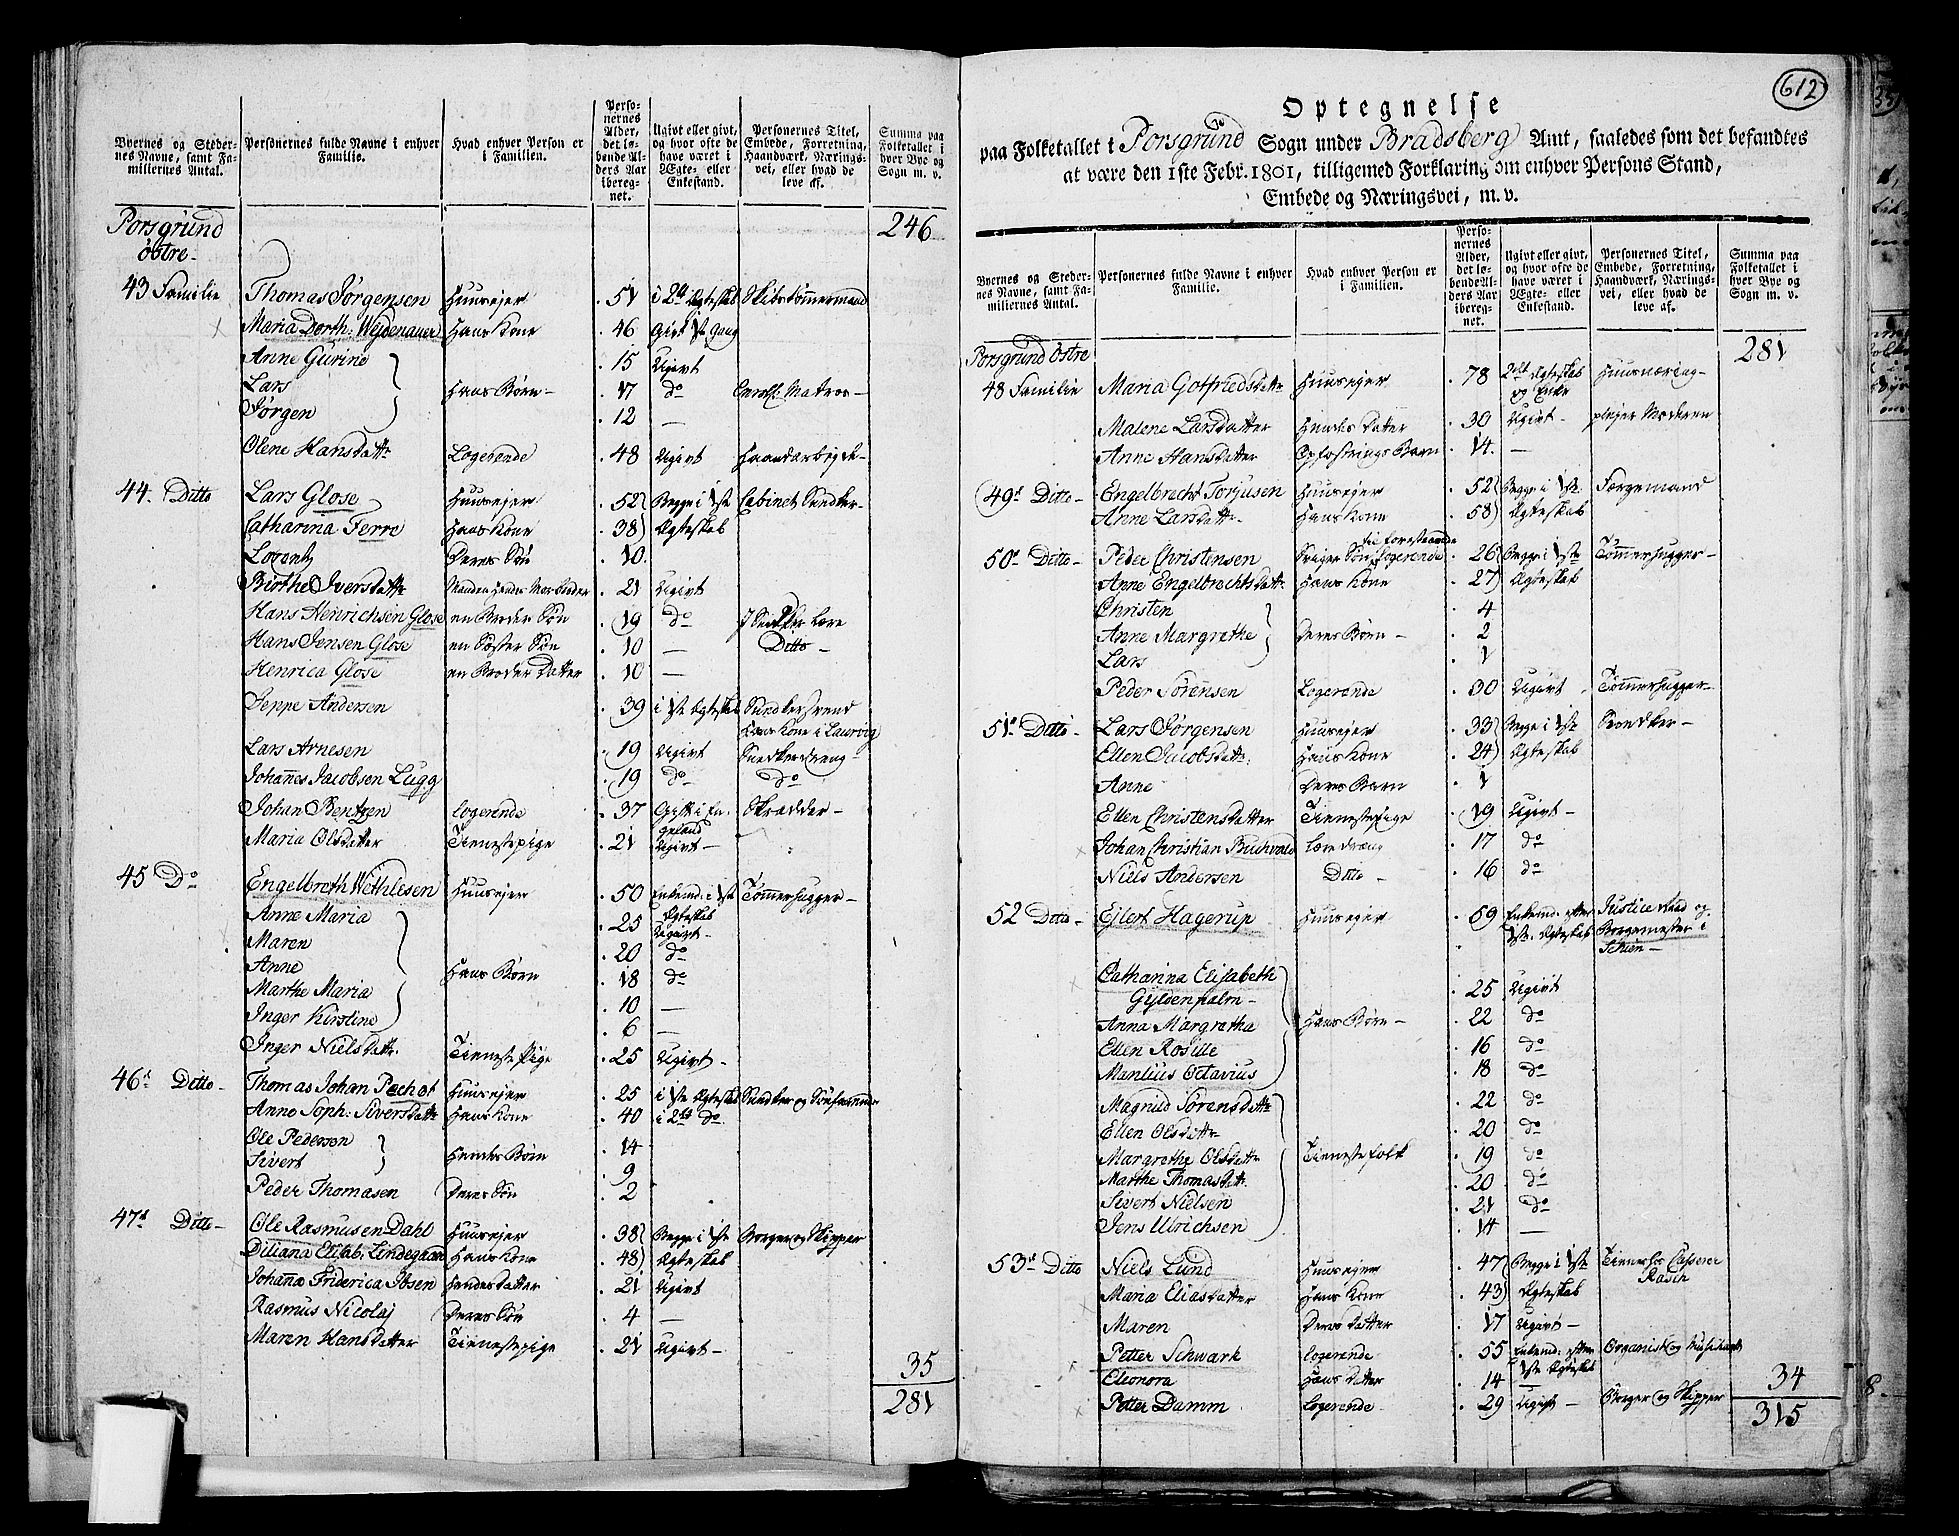 Byernes og Steder-
nes Navne, samt Fa-
miliernes Antal.
Personernes fulde Navne i enhver
Familie.
Hvad enhver Person er
i Familien.
Perso-
nernes
Alder,
det lø-
bende Al-
ders Aar
ibereg-
net.
Ugivt eller givt,
og hvor ofte de
have været i
Ægte- eller
Enkestand.
Personernes Titel,
Embede, Forretning,
Haandværk, Nærings-
vei, eller hvad de
leve af.
Summa paa
Folketallet i
hver Bye og
Sogn m. v.
Porsgrund 246
østre
43 Familie Thomas Jørgensen Huusejer 51 i 2det Ægteskab Skibstømmermand
Maria Dorth: Weydenauer Hans Kone 46 Givt 1ste Gang
Anne Gurine 15 Ugivt
Lars Hans Børn 17 do Enroll: Matros
Jørgen 12 —
Olene Hansdattr Logerende 48 Ugivt Haandarbejde
44. Ditto Lars Glose Huusejer 52 Begge i 1ste Cabinet Snedker
Catharina Ferre Hans Kone 38 Ægteskab
Lorentz Deres Søn 10
Birthe Iversdattr 21 Ugivt
Hans Henrichsen Glose en Broder Søn 19 do I Snedker Lære
Hans Jensen Glose en Søster Søn 10 — Ditto
Henrica Glose en Broder Datter 10 —
Jeppe Andersen 39 i 1ste Ægteskab Snedkersvend
Hans Kone i Laurvig
Lars Arnesen 19 Ugivt Snedkerdreng
Johannes Jacobsen Lugg 19 do do
Johan Bentzen Logerende 37 Givt i En- Skrædder
geland
Maria Olsdatter Tienestepige 21 Ugivt
45 Do Engelbreth Wethlesen Huusejer 50 Enkemd: i 1ste Tømmerhugger
Ægteskab
Anne Maria 25 Ugivt
Maren 20 do
Anne Hans Børn 18 do
Marthe Maria 10 —
Inger Kirstine 6 —
Inger Nielsdattr. Tieneste Pige 25 Ugivt
46de Ditto Thomas Johan Pechot Huusejer 25 i 1ste Ægteskab Snedker og Søefarende
Anne Soph: Siversdattr Hans Kone 40 i 2det do
Ole Pedersen 14
Sivert Hendes Børn 9
Peder Thomasen Deres Søn 2
47de Ditto Ole Rasmusen Dahl Huusejer 38 Begge i 1ste Borger og Skipper
Diliana Elisab: Lindegaard Hans Kone 48 Ægteskab
Johanne Friderica Ibsen Hendes Datter 21 Ugivt
Rasmus Nicolaj Deres Søn 4 —
Maren Hansdatter Tienestepige 21 Ugivt
35
281
612
Optegnelse
paa Folketallet i Porsgrund Sogn under Bradsberg Amt, saaledes som det befandtes
at være den 1ste Febr. 1801, tilligemed Forklaring om enhver Persons Stand,
Embede og Næringsvei, m. v.
Byernes og Steder-
nes Navne, samt Fa-
miliernes Antal.
Personernes fulde Navne i enhver
Familie.
Hvad enhver Person er
i Familien.
Perso-
nernes
Alder,
det lø-
bende Al-
ders Aar
ibereg-
net.
Ugivt eller givt,
og hvor ofte de
have været i
Ægte- eller
Enkestand.
Personernes Titel,
Embede, Forretning,
Haandværk, Nærings-
vei, eller hvad de
leve af.
Summa paa
Folketallet i
hver Bye og
Sogn m. v.
Porsgrund østre 281
48 Familie Maria Gotfriedsdattr Huusejer 78 2det Ægteskab Huusnæring
og Enke
Malene Larsdatter Hendes Datter 30 Ugivt plejer Moderen
Anne Hansdatter Opfostrings Barn 14 —
49de Ditto Engelbrecht Torjusen Huusejer 52 Begge i 1ste Færgemand
Anne Larsdattr Hans Kone 58 Ægteskab
til forestaaende
50de Ditto Peder Christensen Sviger Søn Logerende 26 Begge i 1ste Tømmerhugger
Anne Engelbrechtsdattr Hans Kone 27 Ægteskab
Christen 4
Anne Margrethe Deres Børn 2
Lars 1
Peder Sørensen Logerende 30 Ugivt Tømmerhugger
51de Ditto Lars Jørgensen Huusejer 33 Begge i 1ste Snedker
Ellen Jacobsdattr. Hans Kone 24 Ægteskab
Anne Deres Barn 1
Ellen Christensdatter Tienestepige 19 Ugivt
Johan Christian Buchvald Læredreng 17 do
Niels Andersen Ditto 16 do
52 Ditto Ejlert Hagerup Huusejer 59 Enkemd: efter Justice Raad og
1ste Ægteskab Borgemester i
Schien
Catharina Elisabeth
Gyldenpalm 25 Ugivt
Anna Margretha Hans Børn 22 do
Ellen Rosille 16 do
Manlius Octavius 18 do
Magnild Sørensdattr 22 do
Ellen Olsdattr 20 do
Margrethe Olsdattr Tienestefolk 19 do
Marthe Thomasdattr. 20 do
Sivert Nielsen 21 do
Jens Ulrichsen 14 —
53de Ditto Niels Lund Huusejer 47 Begge i 1ste Tiener hos Casserer
Rasch
Maria Eliasdatter Hans Kone 43 Ægteskab
Maren Deres Datter 17 Ugivt
Petter Schwark Logerende 55 Enkemd: efter Organist og Musikant
1ste Ægteskab
Eleonora Hans Datter 14 —
Petter Damm Logerende 29 Ugift Borger og Skipper
34
315